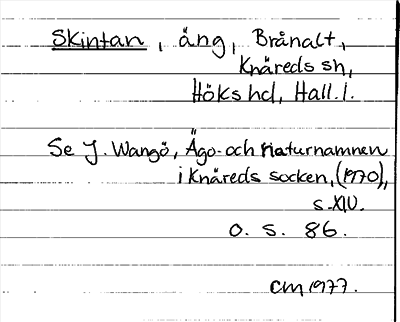 Skintan, äng, Brånalt,
Knäreds sn,
Höks hd, Hall. l.
Se J. Wangö, Ägo- och naturnamnen
i Knäreds socken, (1970),
s. XIV.
o. s. 86.
CM 1977.